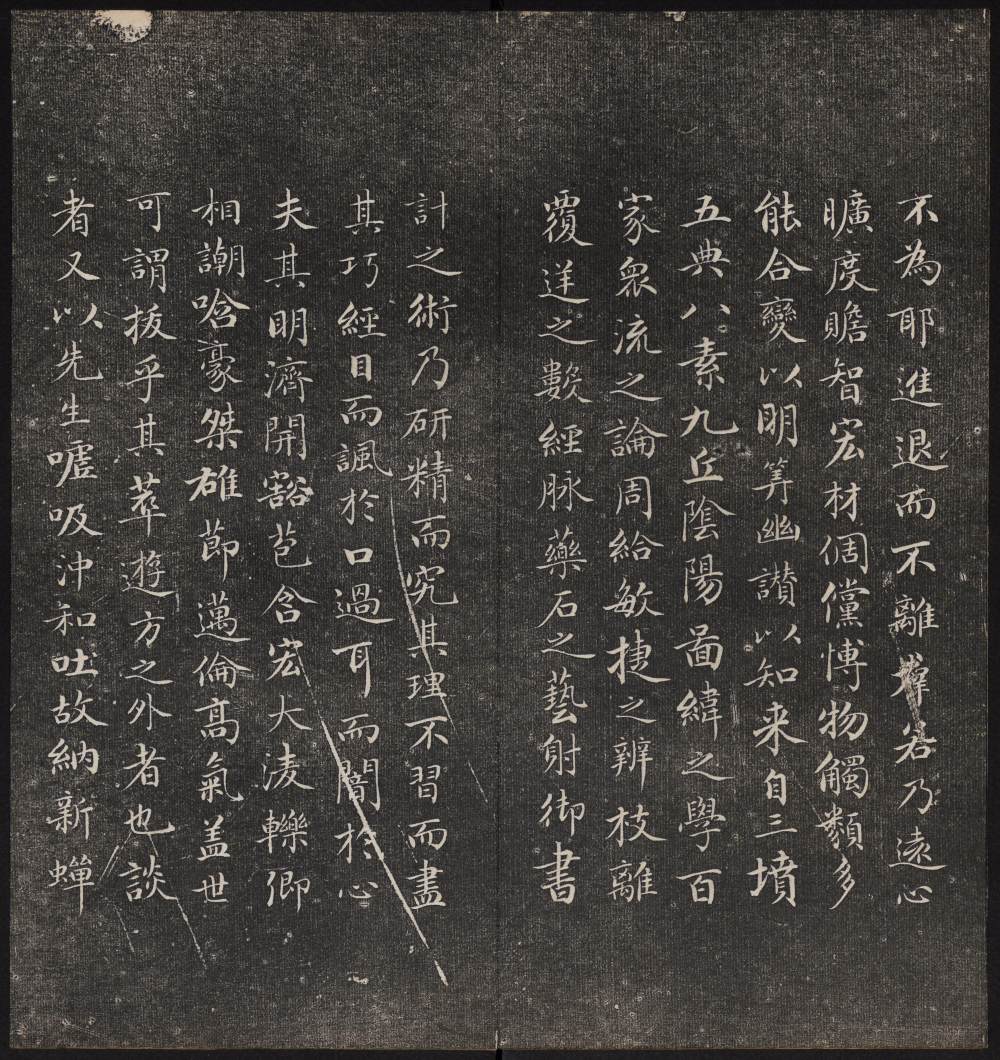 不為耶進退而不離羣若乃遠心
曠度贍智宏材倜儻博物觸類多
能合變以明筭幽讃以知来自三墳
五典八素九丘陰陽啚緯之學百
家衆流之論周給敏捷之辨枝離
覆逆之數經脉藥石之藝射御書
計之術乃研精而究其理不習而盡
其巧經目而諷於口過耳而闇於心
夫其明濟開豁苞含宏大淩轢卿
相謿哈豪桀雄莭邁倫高氣盖世
可謂拔乎其萃遊方之外者也談
者又以先生噓吸沖和吐故納新蟬